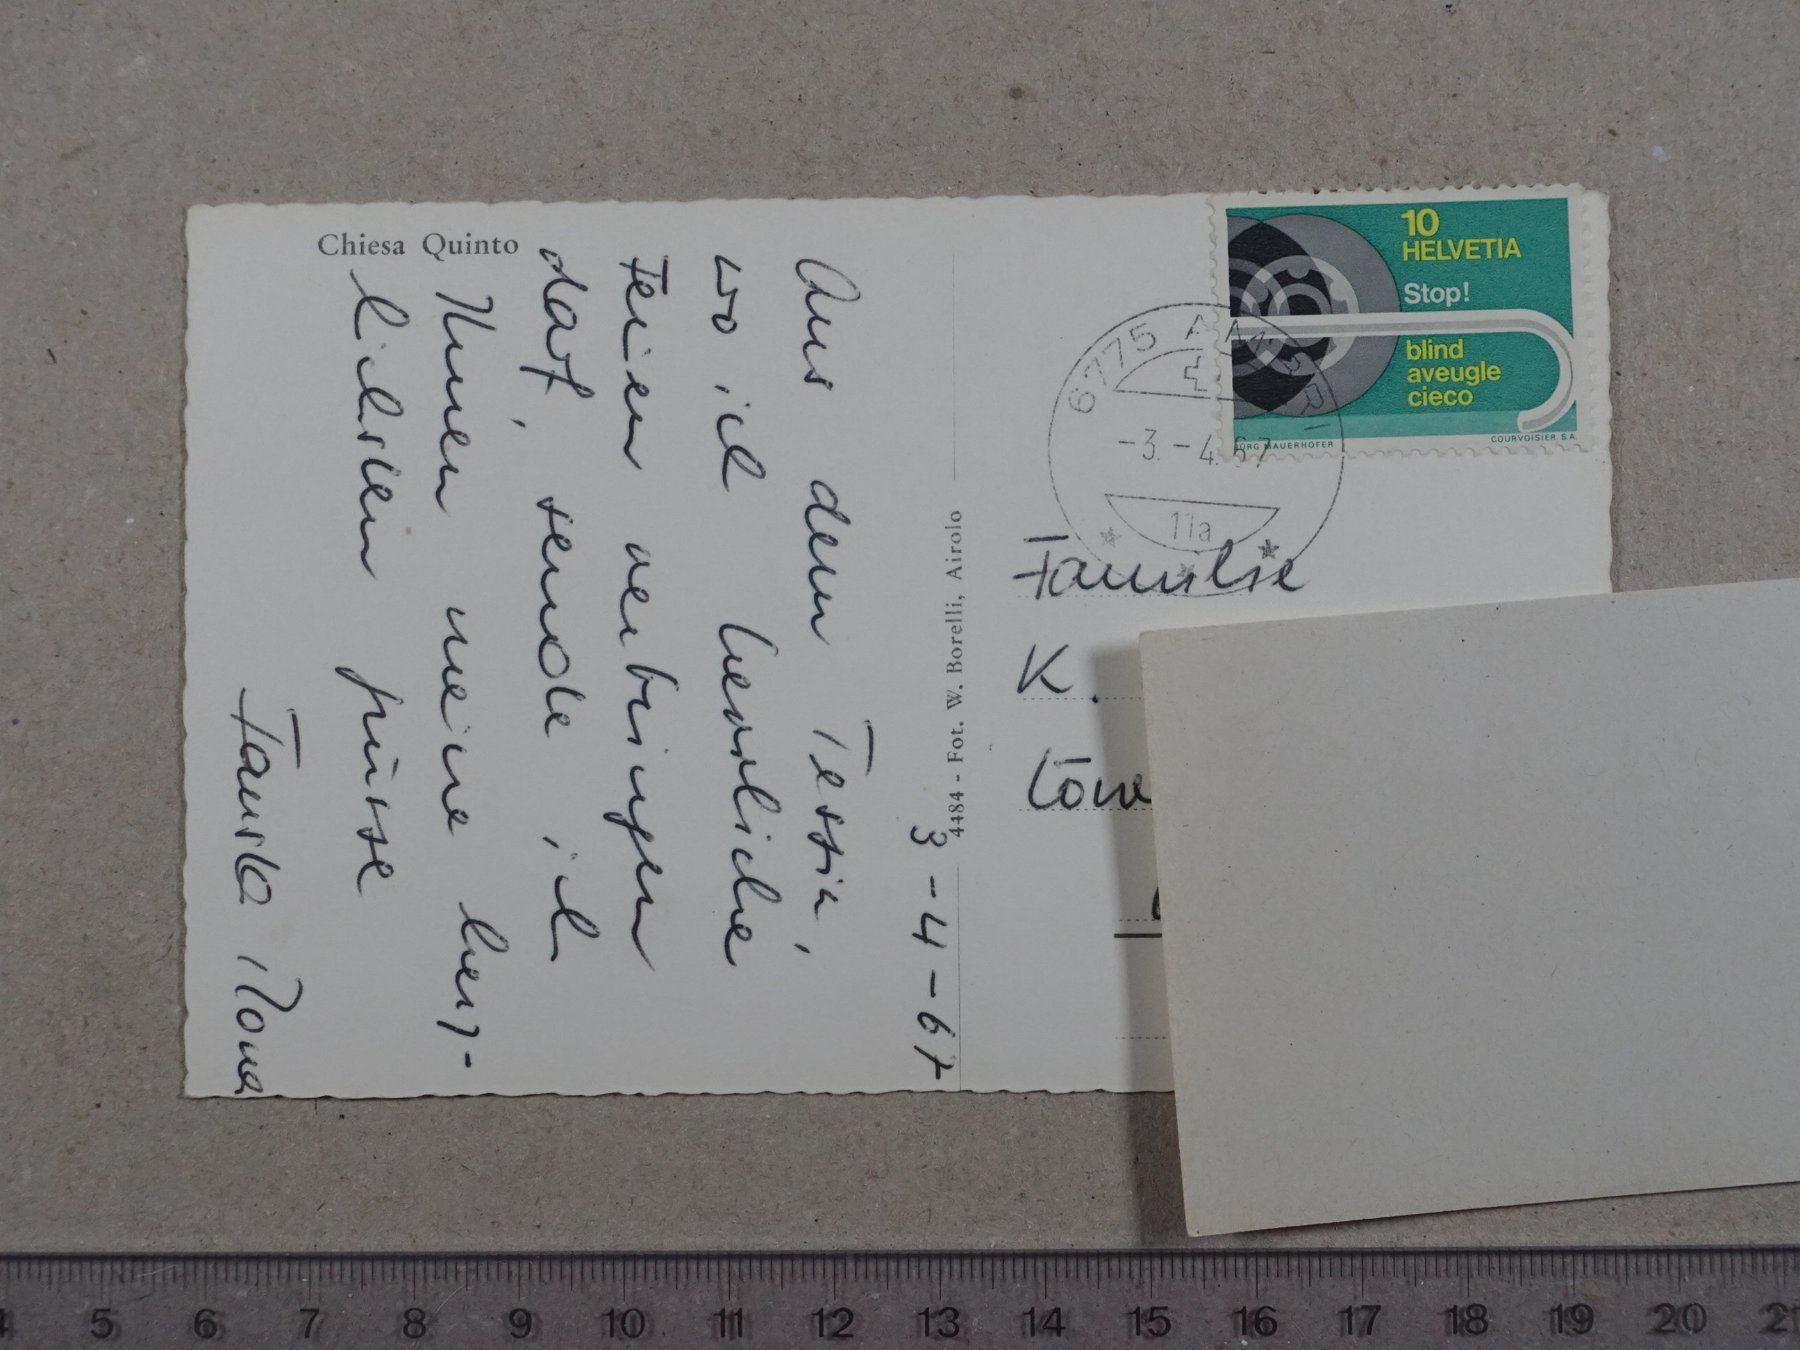 Chiesa Quinto
3-4-67
Aus dem Tessin,
wo ich herrliche
Ferien verbringen
darf, sende ich
Ihnen meine herz-
lichsten Grüsse
4484 - Fot. W. Borelli, Airolo
10
HELVETIA
Stop!
blind
aveugle
cieco
JÜRG MAUERHOFER
COURVOISIER S.A.
6775 AMBRI
-3.-4.67
11a
Familie
K.
4 5 6 7 8 9 10 11 12 13 14 15 16 17 18 19 20 21